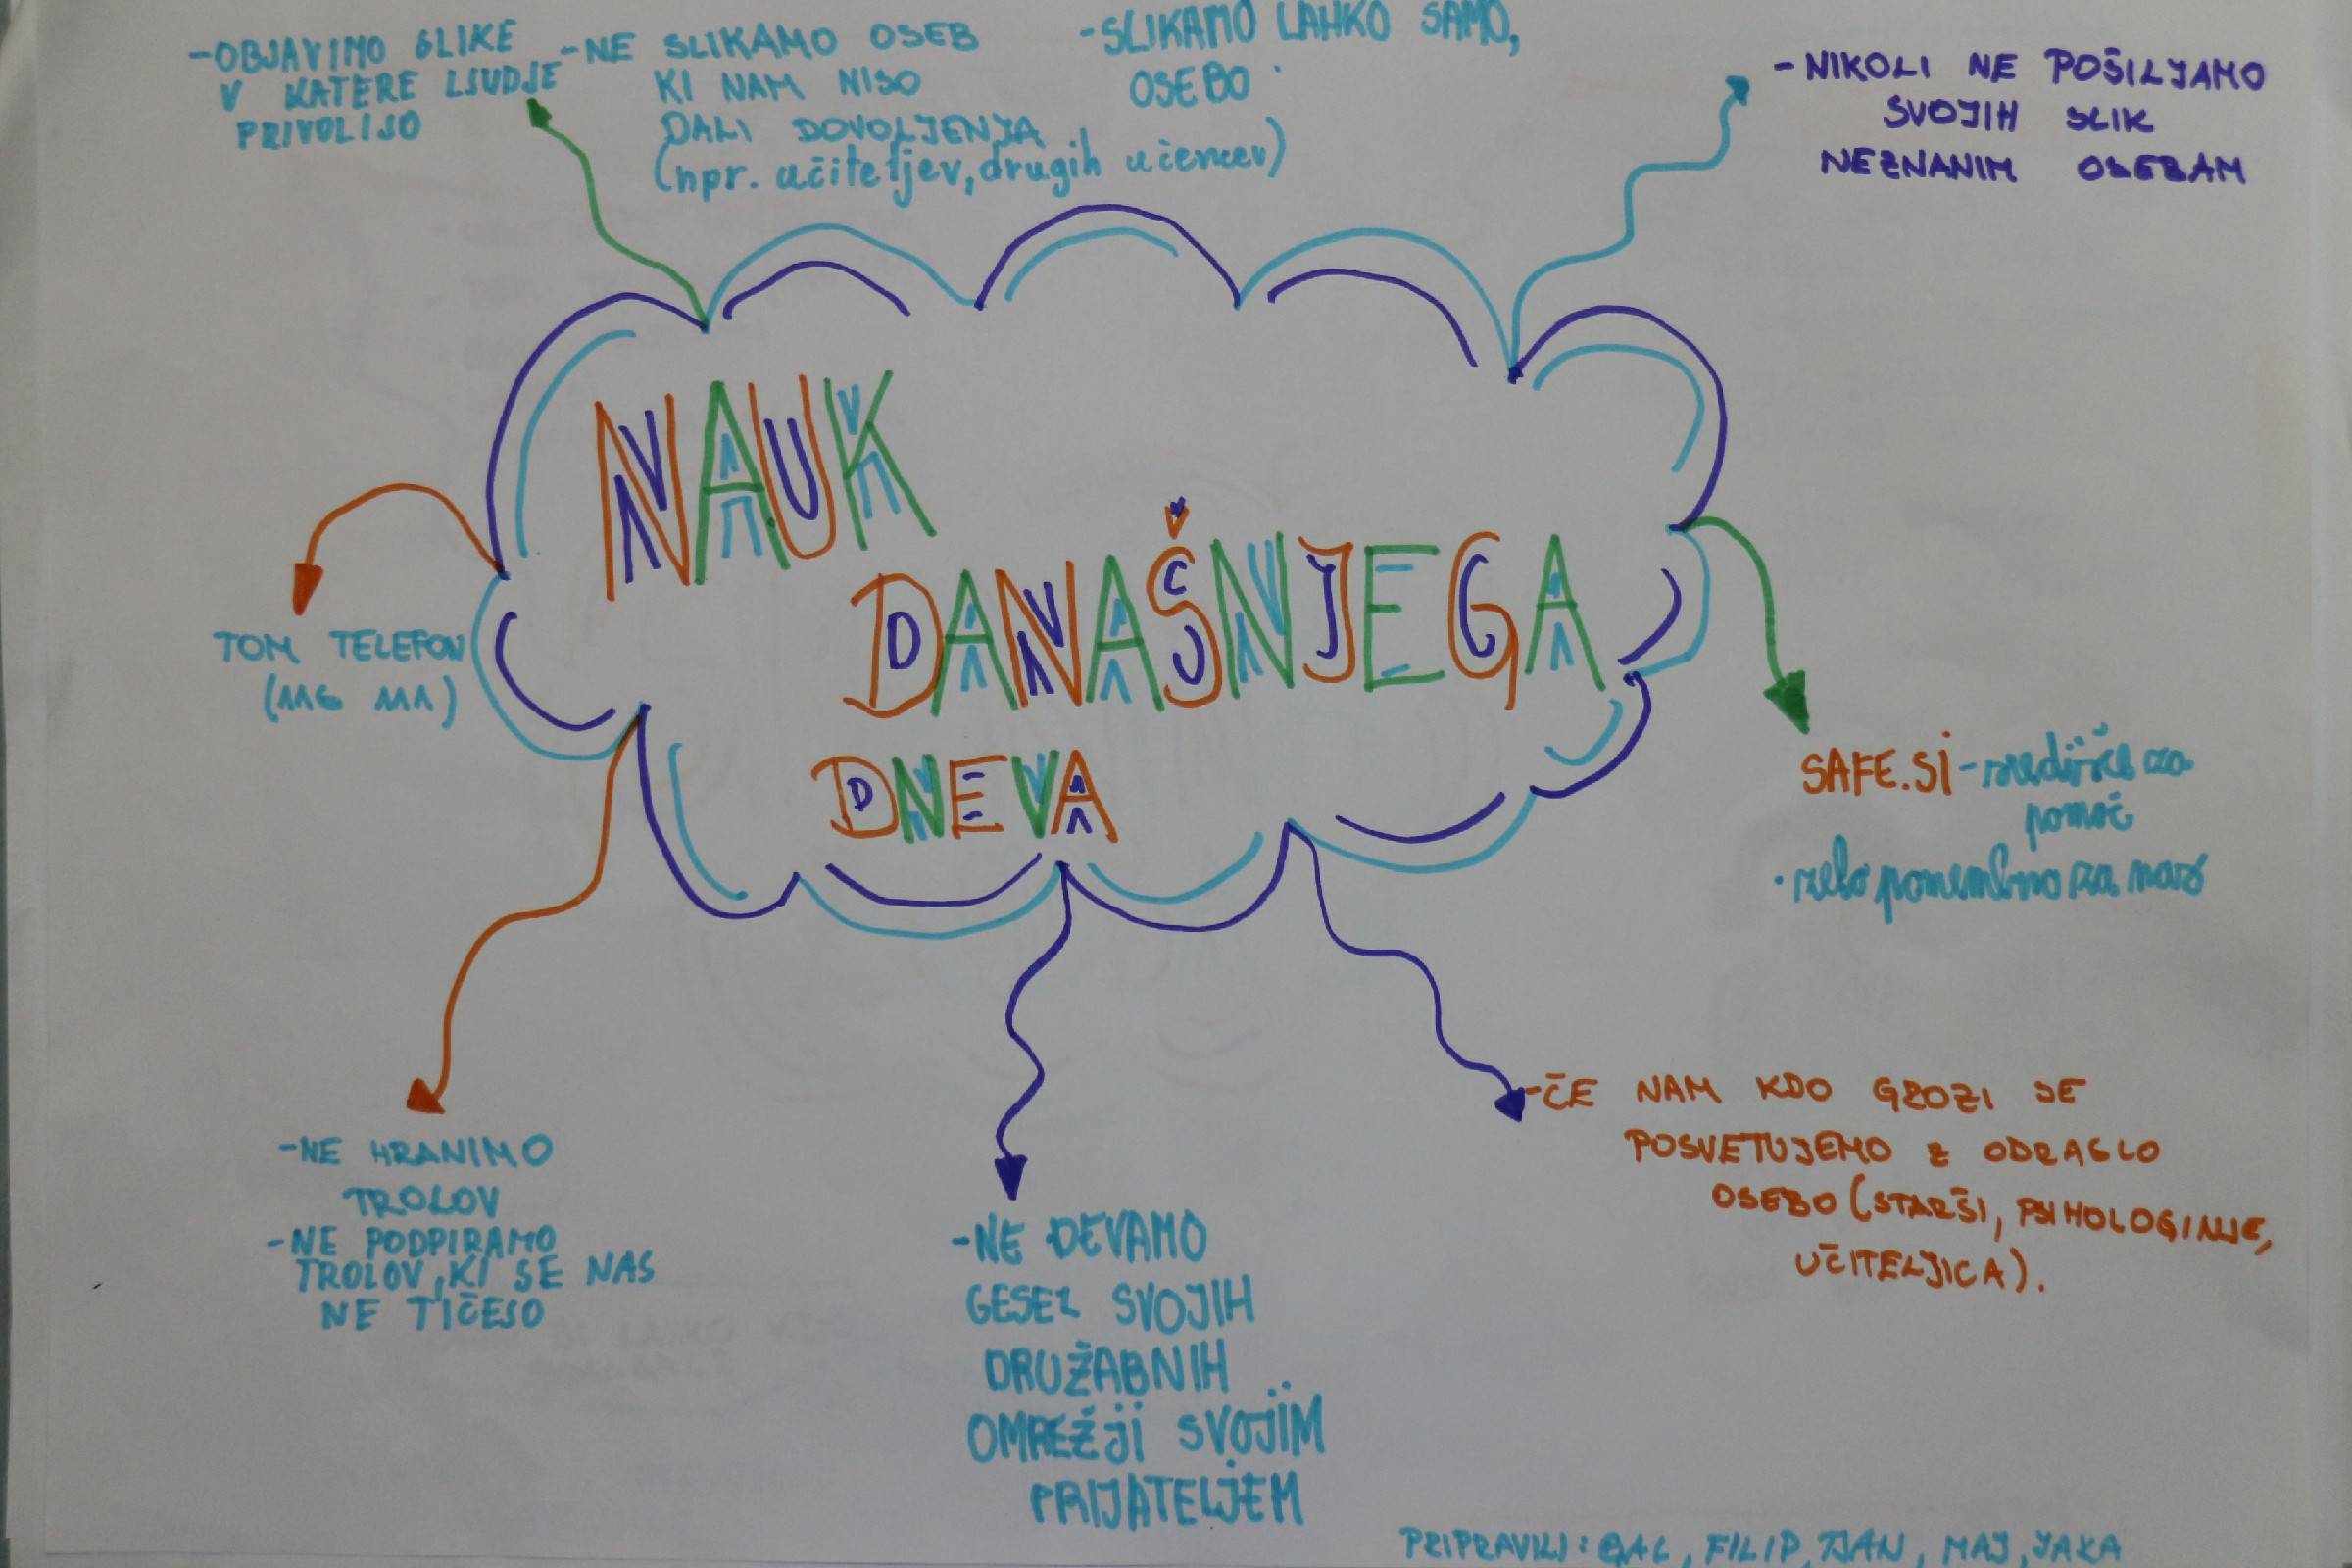 -OBJAVIMO SLIKE
V KATERE LJUDJE
PRIVOLIJO
-NE SLIKAMO OSEB
KI NAM NISO
DALI DOVOLJENJA
(npr. učiteljev, drugih učencev)
-SLIKAMO LAHKO SAMO,
OSEBO
-NIKOLI NE POŠILJAMO
SVOJIH SLIK
NEZNANIM OSEBAM
NAUK
DANAŠNJEGA
DNEVA
TOM TELEFON
(116 111)
SAFE.SI - središče za
pomoč
• zelo pomembno za nas
-NE HRANIMO
TROLOV
-NE PODPIRAMO
TROLOV, KI SE NAS
NE TIČEJO
-NE DEVAMO
GESEL SVOJIH
DRUŽABNIH
OMREŽJI SVOJIM
PRIJATELJEM
-ČE NAM KDO GROZI SE
POSVETUJEMO Z ODRASLO
OSEBO (STARŠI, PSIHOLOGINJE,
UČITELJICA).
PRIPRAVILI: GAL, FILIP, TJAN, MAJ, JAKA